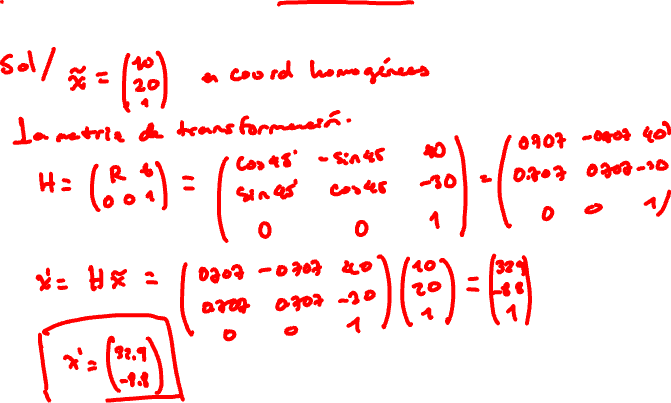 Sol/ x̃ = (10 20 1) en coord homogéneas
La matriz de transformación.
H = (R t 0 0 1) = (cos 45° -sin 45 40 sin 45° cos 45 -30 0 0 1) = (0.707 -0.707 40 0.707 0.707 -30 0 0 1)
x' = H x̃ = (0.707 -0.707 40 0.707 0.707 -30 0 0 1) (10 20 1) = (32.9 -8.8 1)
x' = (32.9 -8.8)